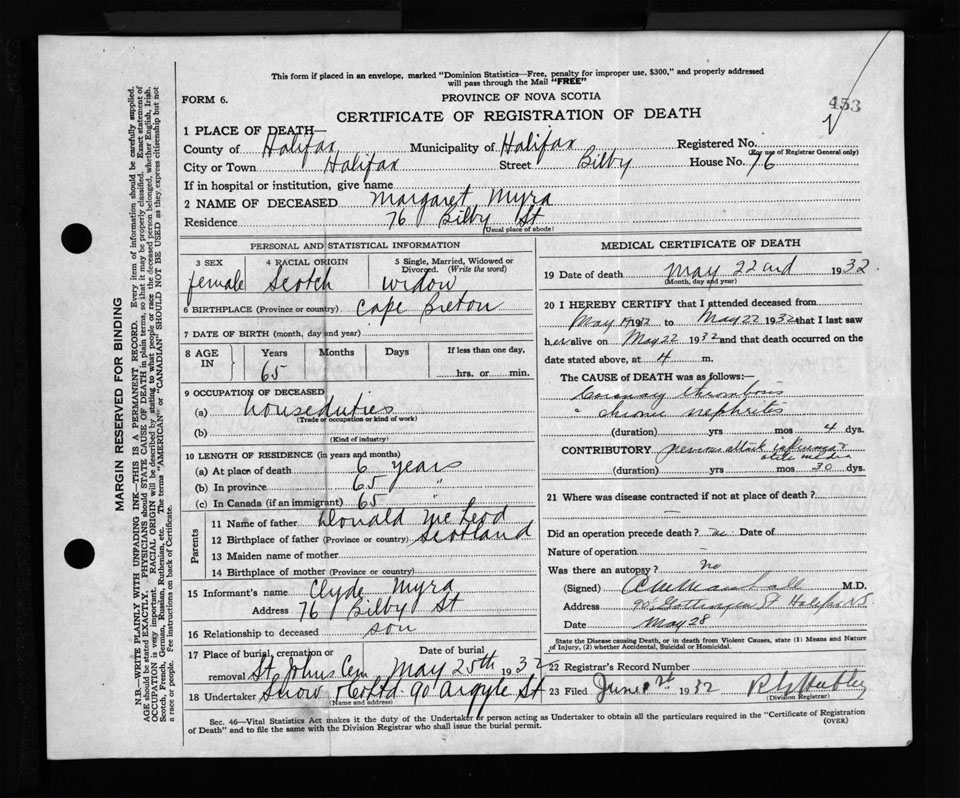 This form if placed in an envelope, marked "Dominion Statistics—Free, penalty for improper use, $300," and properly addressed
will pass through the Mail "FREE"
FORM 6.
PROVINCE OF NOVA SCOTIA
453
CERTIFICATE OF REGISTRATION OF DEATH
1 PLACE OF DEATH—
County of Halifax Municipality of Halifax Registered No.
(For use of Registrar General only)
City or Town Halifax Street Bilby House No. 76
If in hospital or institution, give name
2 NAME OF DECEASED Margaret Myra
Residence 76 Bilby St
(Usual place of abode)
PERSONAL AND STATISTICAL INFORMATION
3 SEX 4 RACIAL ORIGIN 5 Single, Married, Widowed or
Divorced. (Write the word)
female Scotch widow
6 BIRTHPLACE (Province or country) Cape Breton
7 DATE OF BIRTH (month, day and year)
8 AGE IN Years Months Days If less than one day,
65 hrs. or min.
9 OCCUPATION OF DECEASED
(a) house duties
(Trade or occupation or kind of work)
(b)
(Kind of industry)
10 LENGTH OF RESIDENCE (in years and months)
(a) At place of death 6 years
(b) In province 65 "
(c) In Canada (if an immigrant) 65 "
Parents
11 Name of father Donald McLeod
12 Birthplace of father (Province or country) Scotland
13 Maiden name of mother
14 Birthplace of mother (Province or country)
15 Informant's name Clyde Myra
Address 76 Bilby St
16 Relationship to deceased son
17 Place of burial, cremation or Date of burial
removal St Johns Cem May 25th 1932
18 Undertaker Snow & Co Ltd 90 Argyle St
(Name and address)
MEDICAL CERTIFICATE OF DEATH
19 Date of death May 22nd 1932
(Month, day and year)
20 I HEREBY CERTIFY that I attended deceased from
May 19 1932 to May 22 1932 that I last saw
her alive on May 22 1932 and that death occurred on the
date stated above, at 4 m.
The CAUSE of DEATH was as follows:—
Coronary thrombosis
" chronic nephritis
(duration) yrs mos 4 dys.
CONTRIBUTORY previous attack influenza &
otitis media
(duration) yrs mos 30 dys.
21 Where was disease contracted if not at place of death?
Did an operation precede death? no Date of
Nature of operation
Was there an autopsy? no
(Signed) M.D.
Address Gottingen St Halifax NS
Date May 28
State the Disease causing Death, or in death from Violent Causes, state (1) Means and Nature
of Injury, (2) whether Accidental, Suicidal or Homicidal.
22 Registrar's Record Number
23 Filed June 1932
(Division Registrar)
Sec. 46—Vital Statistics Act makes it the duty of the Undertaker or person acting as Undertaker to obtain all the particulars required in the "Certificate of Registration
of Death" and to file the same with the Division Registrar who shall issue the burial permit.
(OVER)
MARGIN RESERVED FOR BINDING
N.B.—WRITE PLAINLY WITH UNFADING INK—THIS IS A PERMANENT RECORD. Every item of information should be carefully supplied.
AGE should be stated EXACTLY. PHYSICIANS should STATE CAUSE OF DEATH in plain terms, so that it may be properly classified. Exact statement of
OCCUPATION is very important. RACIAL ORIGIN will be described by stating to what people or race the deceased person belonged, whether English, Irish,
Scotch, French, German, Russian, Ruthenian, etc. The terms "AMERICAN" or "CANADIAN" SHOULD NOT BE USED as they express citizenship but not
a race or people. Fee instructions on back of Certificate.